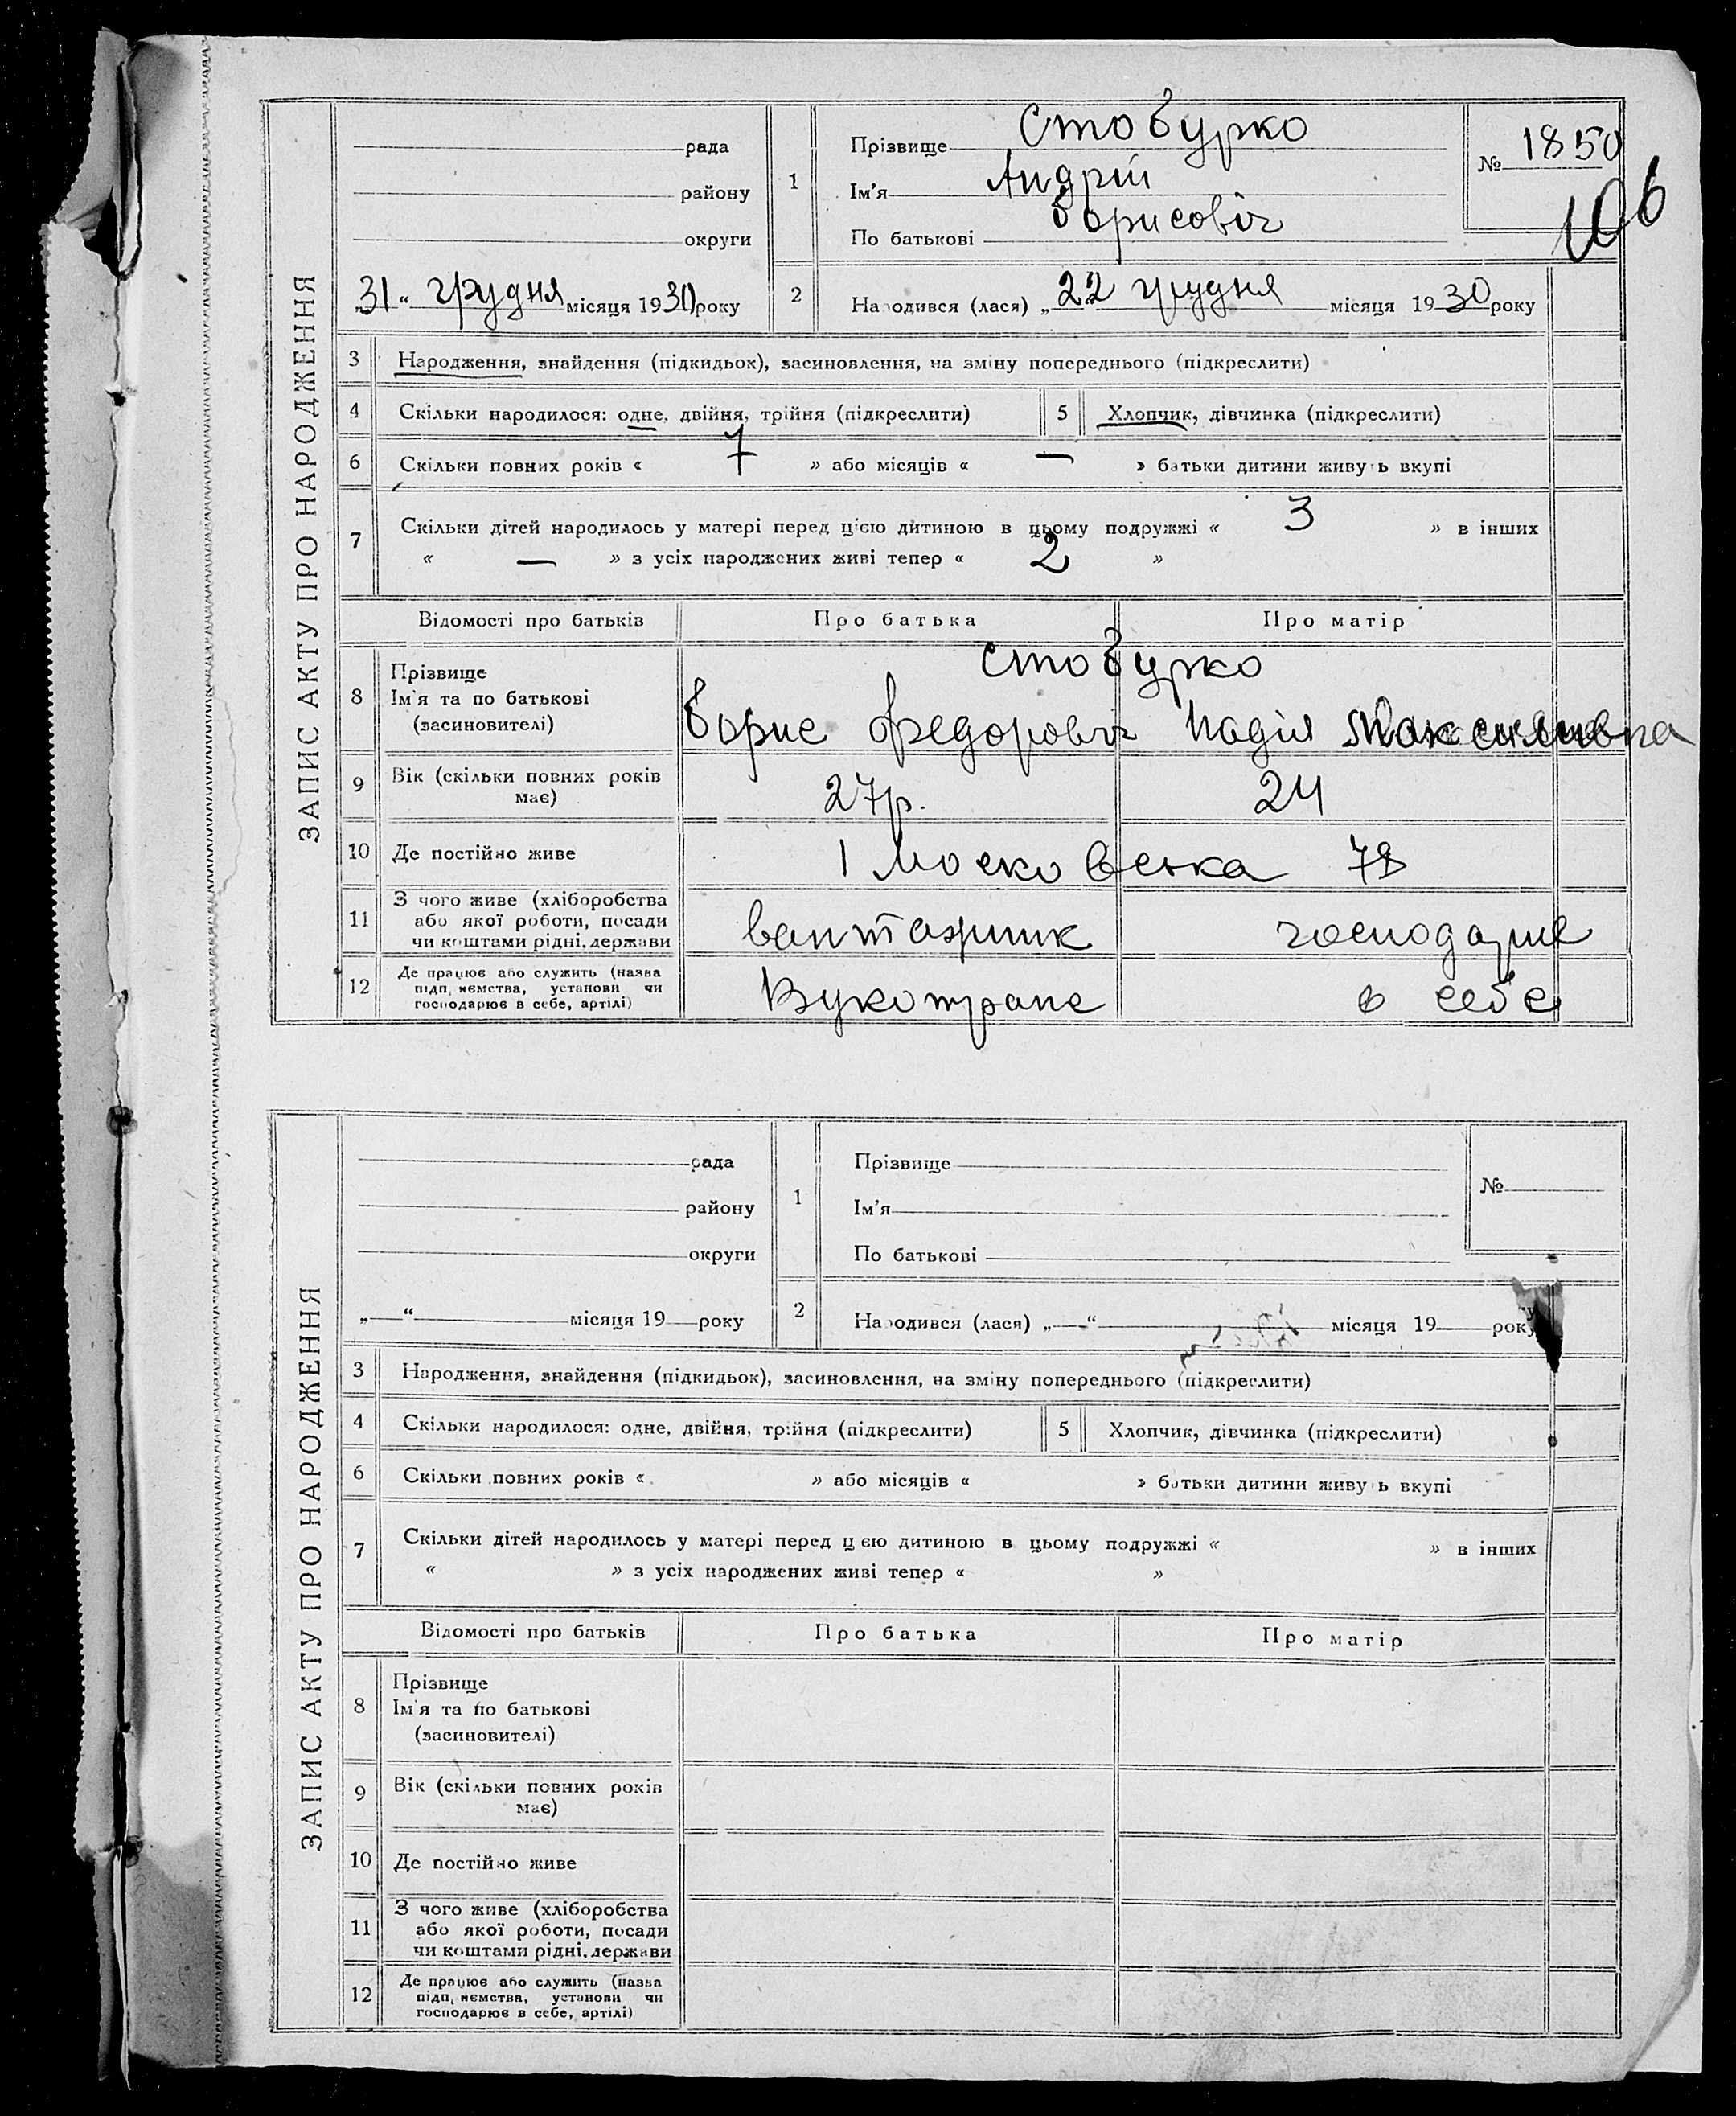 ЗАПИС АКТУ ПРО НАРОДЖЕННЯ
рада
району
округи
„31“ грудня місяця 1930 року
1
Прізвище Стобурко
Ім'я Андрій
По батькові Борисовіч
№ 1850
106
2
Народився (лася) „22“ грудня місяця 1930 року
3 Народження, знайдення (підкидьок), засиновлення, на зміну попереднього (підкреслити)
4 Скільки народилося: одне, двійня, трійня (підкреслити) 5 Хлопчик, дівчинка (підкреслити)
6 Скільки повних років « 7 » або місяців « — » батьки дитини живуть вкупі
7 Скільки дітей народилось у матері перед цією дитиною в цьому подружжі « 3 » в інших
« — » з усіх народжених живі тепер « 2 »
Відомості про батьків Про батька Про матір
8 Прізвище
Ім'я та по батькові
(засиновителі)
Стобурко
Борис Федоровіч Надія
9 Вік (скільки повних років
має)
27р. 24
10 Де постійно живе І Московська 78
11 З чого живе (хліборобства
або якої роботи, посади
чи коштами рідні, держави
вантажник господарює
12 Де працює або служить (назва
підприємства, установи чи
господарює в себе, артілі)
Вукотранс в себе
ЗАПИС АКТУ ПРО НАРОДЖЕННЯ
рада
району
округи
„ “ місяця 19 року
1
Прізвище
Ім'я
По батькові
№
2
Народився (лася) „ “ місяця 19 року
3 Народження, знайдення (підкидьок), засиновлення, на зміну попереднього (підкреслити)
4 Скільки народилося: одне, двійня, трійня (підкреслити) 5 Хлопчик, дівчинка (підкреслити)
6 Скільки повних років « » або місяців « » батьки дитини живуть вкупі
7 Скільки дітей народилось у матері перед цією дитиною в цьому подружжі « » в інших
« » з усіх народжених живі тепер « »
Відомості про батьків Про батька Про матір
8 Прізвище
Ім'я та по батькові
(засиновителі)
9 Вік (скільки повних років
має)
10 Де постійно живе
11 З чого живе (хліборобства
або якої роботи, посади
чи коштами рідні, держави
12 Де працює або служить (назва
підприємства, установи чи
господарює в себе, артілі)